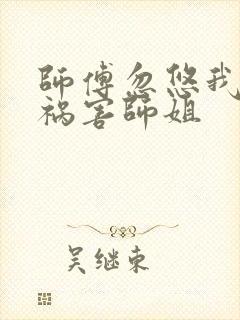 師傅忽悠我
祸害師姐
吴继東